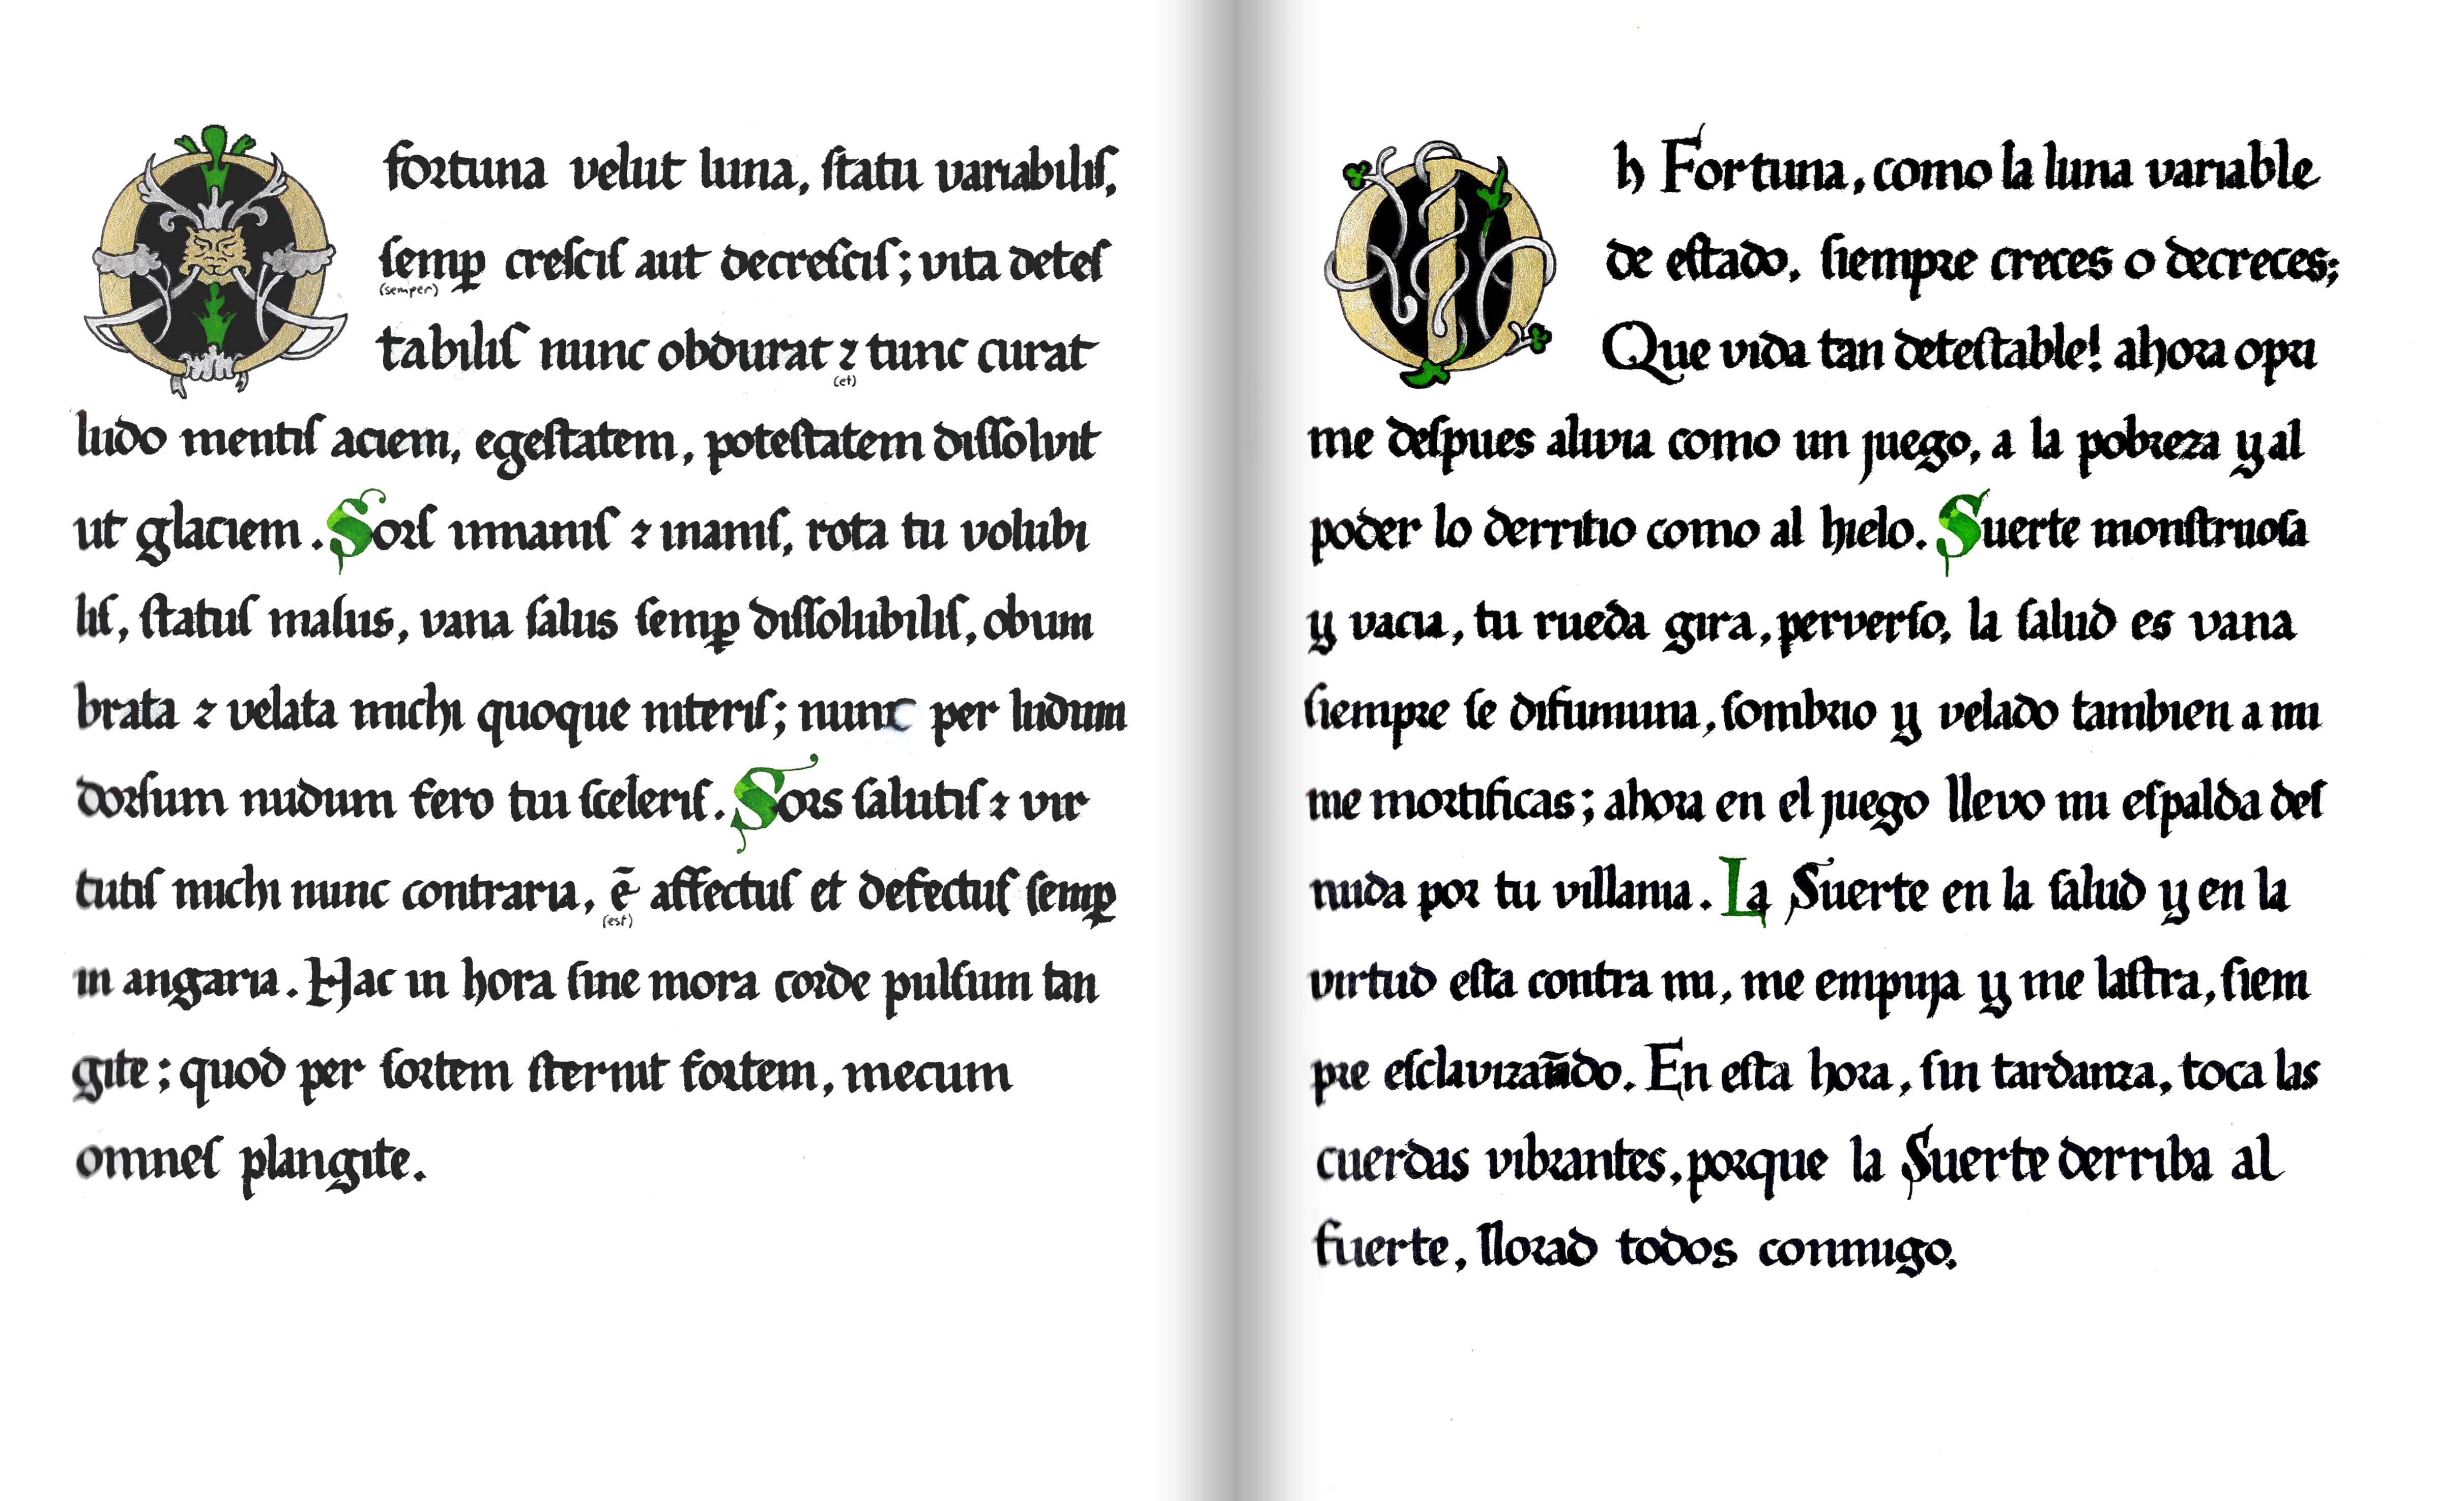 O fortuna velut luna, ſtatu variabiliſ,
ſemꝑ creſciſ aut decreſciſ; vita deteſ
(semper)
tabiliſ nunc obdurat ⁊ tunc curat
(et)
ludo mentiſ aciem, egeſtatem, poteſtatem diſſolvit
ut glaciem. Sorſ inmaniſ ⁊ inaniſ, rota tu volubi
liſ, ſtatuſ malus, vana ſalus ſemꝑ diſſolubiliſ, obum
brata ⁊ velata michi quoque niteriſ; nunc per ludum
dorſum nudum fero tui ſceleriſ. Sors ſalutiſ ⁊ vir
tutiſ michi nunc contraria, ē affectuſ et defectuſ ſemꝑ
(est)
in angaria. Hac in hora ſine mora corde pulſum tan
gite; quod per ſortem ſternit fortem, mecum
omneſ plangite.
Oh Fortuna, como la luna variable
de eſtado, ſiempre creces o decreces;
Que vida tan deteſtable! ahora opri
me deſpues alivia como un juego, a la pobreza y al
poder lo derritio como al hielo. Suerte monſtruoſa
y vacia, tu rueda gira, perverſo, la ſalud es vana
ſiempre ſe difumina, ſombrio y velado tambien a mi
me mortificas; ahora en el juego llevo mi eſpalda deſ
nuda por tu villania. La Suerte en la ſalud y en la
virtud eſta contra mi, me empuja y me laſtra, ſiem
pre eſclavizando. En eſta hora, ſin tardanza, toca las
cuerdas vibrantes, porque la Suerte derriba al
fuerte, llorad todos conmigo.